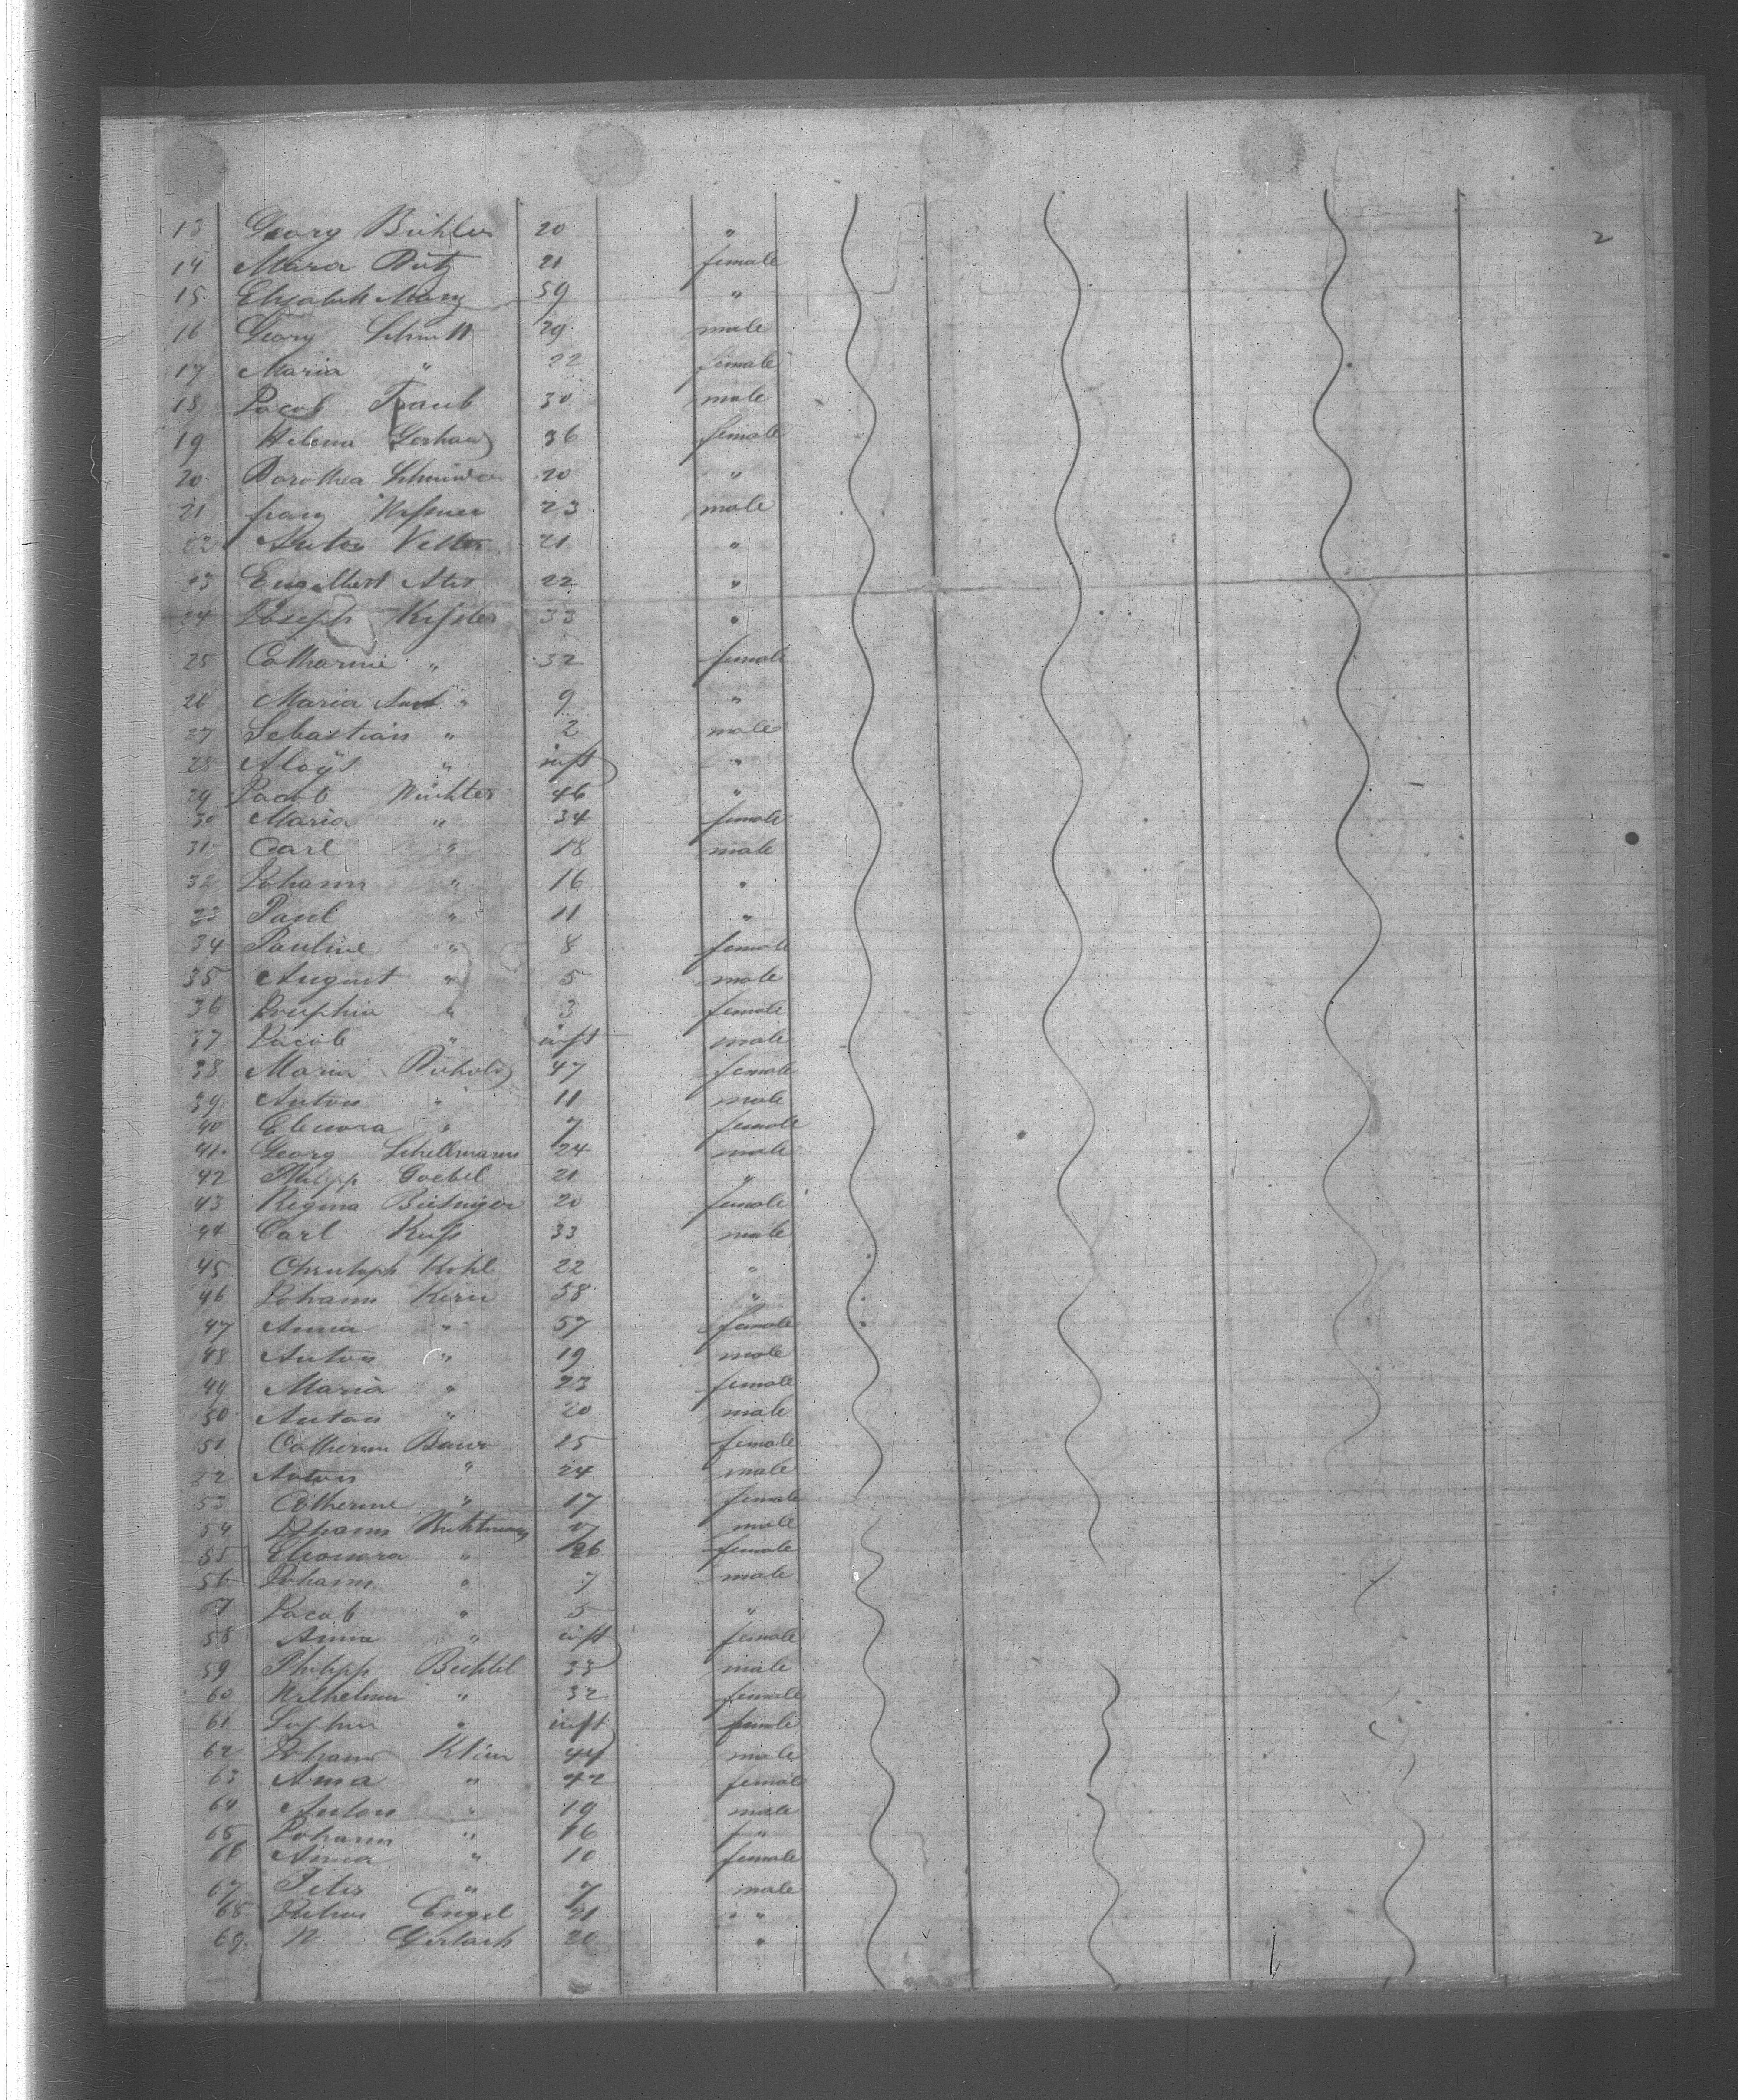 2
13 Georg Bühler 20 "
14 Maria Butz 21 female
15 Elisabeth Mang 59 "
16 Georg Schmitt 29 male
17 Maria " 22 female
18 Jacob Traub 30 male
19 Helena 36 female
20 Dorothea 20 "
21 franz 23 male
22 Anton Vetter 21 "
23 Engelbert 22 "
24 Joseph Kißler 33 "
25 Catharine " 32 female
26 Maria " 9 "
27 Sebastian " 2 male
28 Aloÿs " inft "
29 Jacob Winkter 46 "
30 Maria " 34 female
31 Carl " 18 male
32 Johann " 16 "
33 Paul " 11 "
34 Pauline " 8 female
35 August " 5 male
36 Josephin " 3 female
37 Jacob " inft male
38 Maria 47 female
39 Anton " 11 male
40 Elenora " 7 female
41. Georg Schellmann 24 male
42 Philipp Goebel 21 "
43 Regina 20 female
44 Carl Kuß 33 male
45 Christoph Kohl 22 "
46 Johann Kern 58 "
47 Anna " 57 female
48 Anton " 19 male
49 Maria " 23 female
50 Anton " 20 male
51 Catherine Bauer 25 female
52 Anton " 24 male
53 Catherine " 17 female
54 Johann male
55 Eleonora " 26 female
56 Johann " 7 male
57 Jacob " 5 "
58 Anna " inft female
59 Philipp Bechtel 33 male
60 Wilhelmin " 32 female
61 Sophie " inft female
62 Johann Klein 44 male
63 Anna " 42 female
64 Anton " 19 male
65 Johann " 16 "
66 Anna " 10 female
67 Peter " 7 male
68 Engel 21 "
69. N Gerlach 20 "